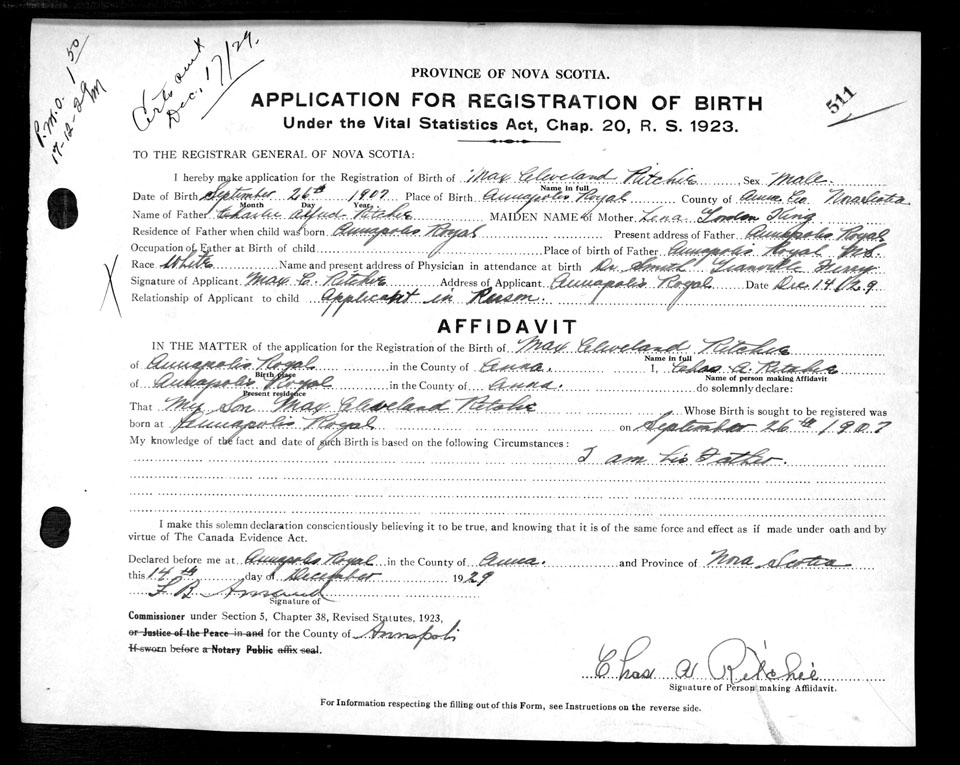 P.M.O. 1.50
17-12-29 M
Certs out
Dec. 17/29.
511
PROVINCE OF NOVA SCOTIA.
APPLICATION FOR REGISTRATION OF BIRTH
Under the Vital Statistics Act, Chap. 20, R. S. 1923.
TO THE REGISTRAR GENERAL OF NOVA SCOTIA:
I hereby make application for the Registration of Birth of Max Cleveland Ritchie Sex Male.
Name in full
Date of Birth September 26th 1907 Place of Birth Annapolis Royal County of Anna Co Nova Scotia
Month Day Year
Name of Father Charlie Alfred Ritchie MAIDEN NAME of Mother Lena Gordon King
Residence of Father when child was born Annapolis Royal Present address of Father Annapolis Royal
Occupation of Father at Birth of child Place of birth of Father Annapolis Royal N.S.
Race White Name and present address of Physician in attendance at birth Dr. Smith Granville Ferry
Signature of Applicant Max C. Ritchie Address of Applicant Annapolis Royal Date Dec. 14 1929
Relationship of Applicant to child Applicant in Person.
AFFIDAVIT
IN THE MATTER of the application for the Registration of the Birth of Max Cleveland Ritchie
Name in full
of Annapolis Royal in the County of Anna. I, Chas A. Ritchie
Birth place Name of person making Affidavit
of Annapolis Royal in the County of Anna. do solemnly declare:
Present residence
That My Son Max Cleveland Ritchie Whose Birth is sought to be registered was
born at Annapolis Royal on September 26th 1907
My knowledge of the fact and date of such Birth is based on the following Circumstances:
I am his Father.
I make this solemn declaration conscientiously believing it to be true, and knowing that it is of the same force and effect as if made under oath and by
virtue of The Canada Evidence Act.
Declared before me at Annapolis Royal in the County of Anna. and Province of Nova Scotia
this 14th day of December 1929
F B
Signature of
Commissioner under Section 5, Chapter 38, Revised Statutes, 1923,
or Justice of the Peace in and for the County of Annapolis
If sworn before a Notary Public affix seal.
Chas A Ritchie
Signature of Person making Affidavit.
For Information respecting the filling out of this Form, see Instructions on the reverse side.